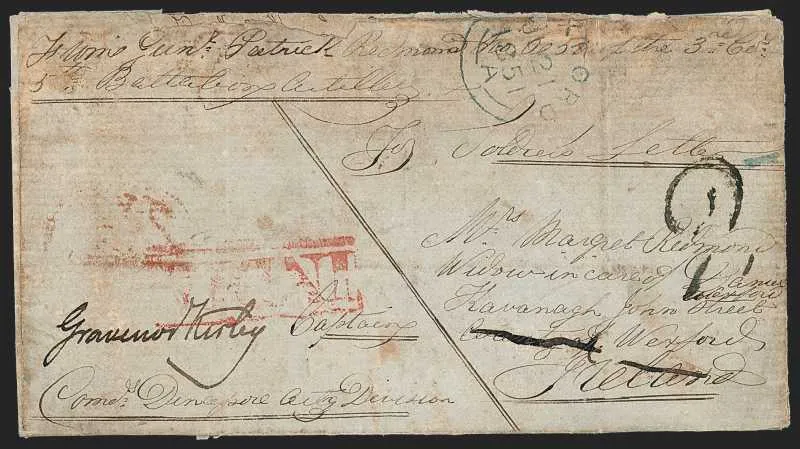 From Gunr. Patrick Redmond No of the 3rd Coy.
5th Battalion Artillery
To Soldiers Letter
Mrs. Margret Redmond
Widow in care of
Kavanagh John Street
Wexford
Ireland
Gravenor Kirby Captain
Comdg. Dinapore Arty Division
WEXFORD
21
1851
A
1